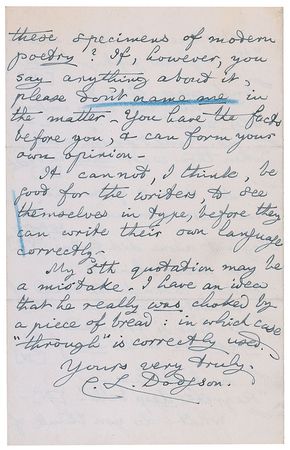 these specimens of modern
poetry? If, however, you
say anything about it,
please don't name me in
the matter. You have the facts
before you, & can form your
own opinion -
It cannot, I think, be
good for the writers, to see
themselves in type, before they
can write their own language
correctly.
My 5th quotation may be
a mistake. I have an idea
that he really was choked by
a piece of bread: in which case
"through" is correctly used.
Yours very truly,
C. L. Dodgson.